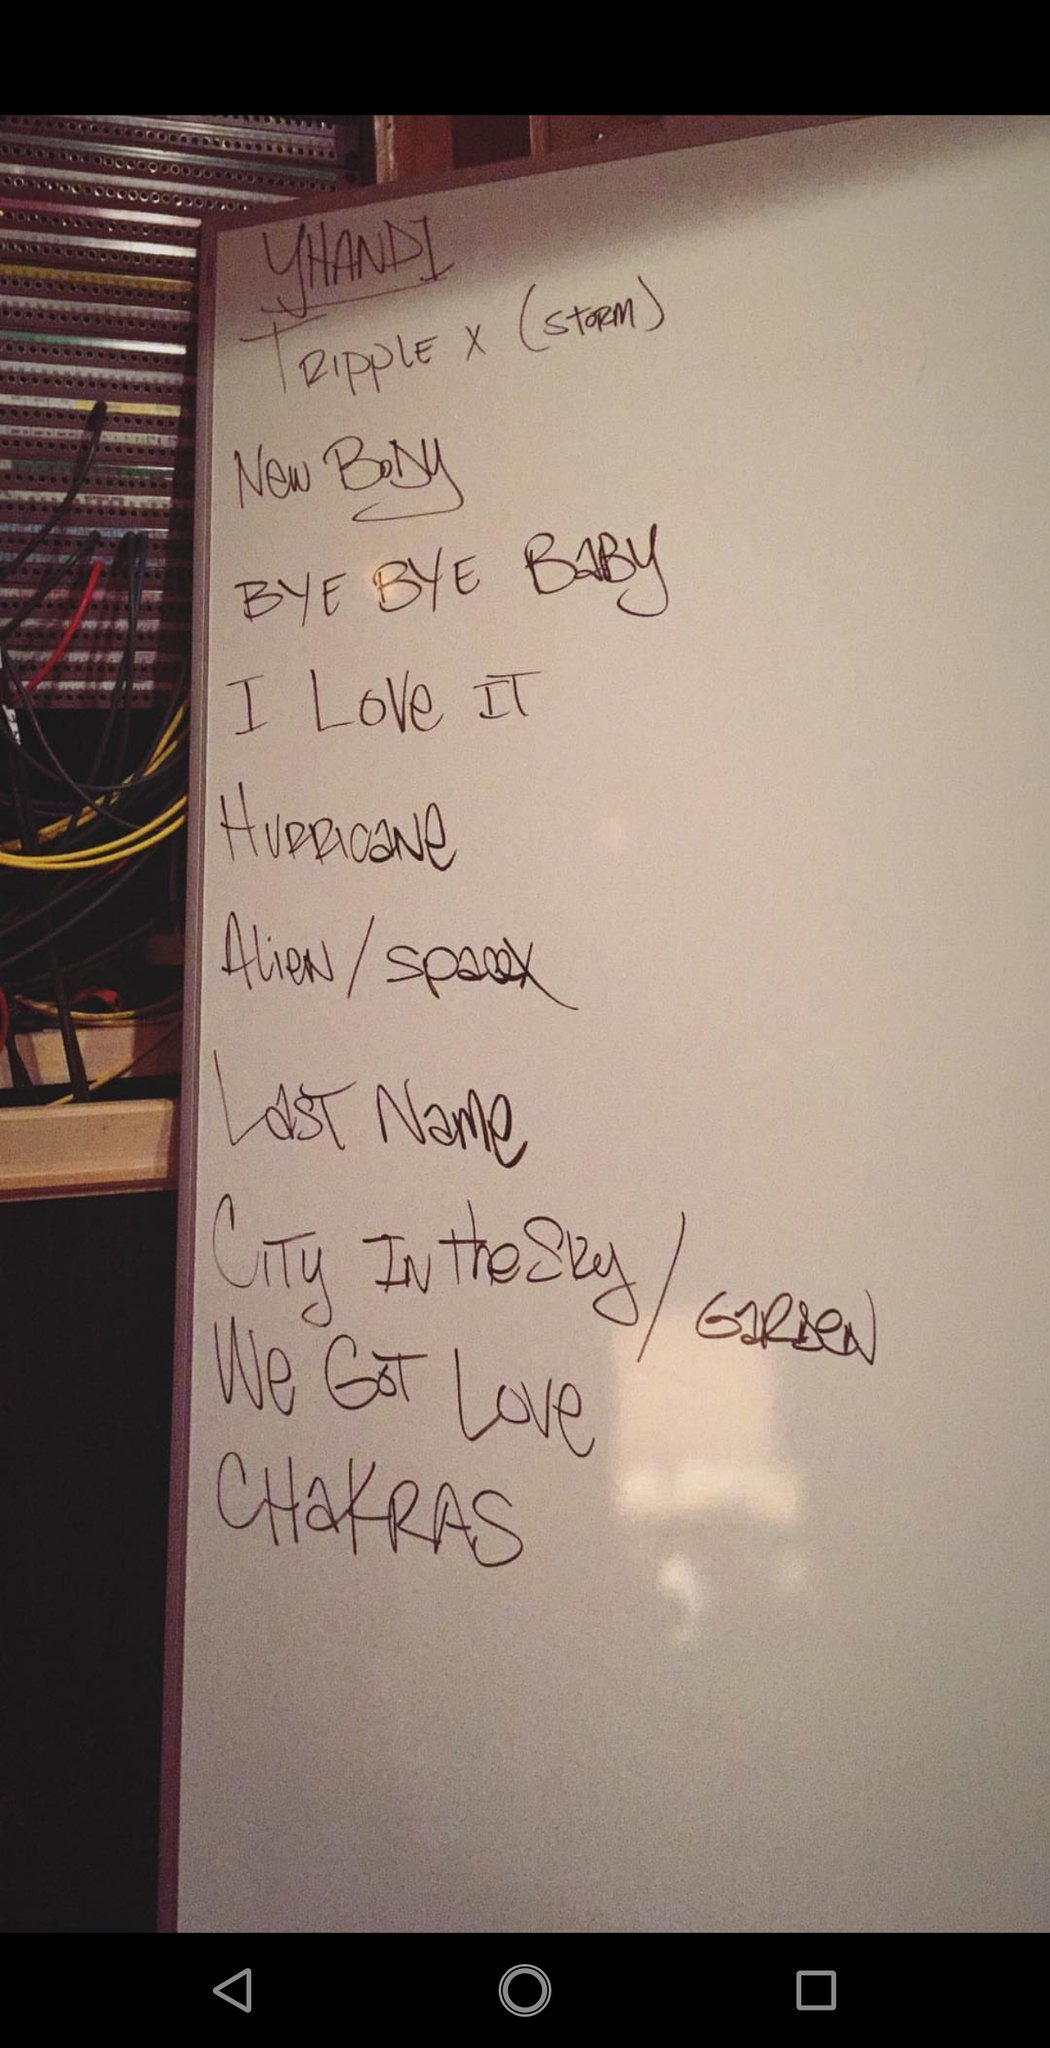 YHANDI
TRIPPLE X (STORM)
New BODY
BYE BYE BABY
I Love IT
HURRICaNe
Alien / spaceX
Last Name
CITY IN the Sky / GaRDeN
We GoT Love
CHaKRAS